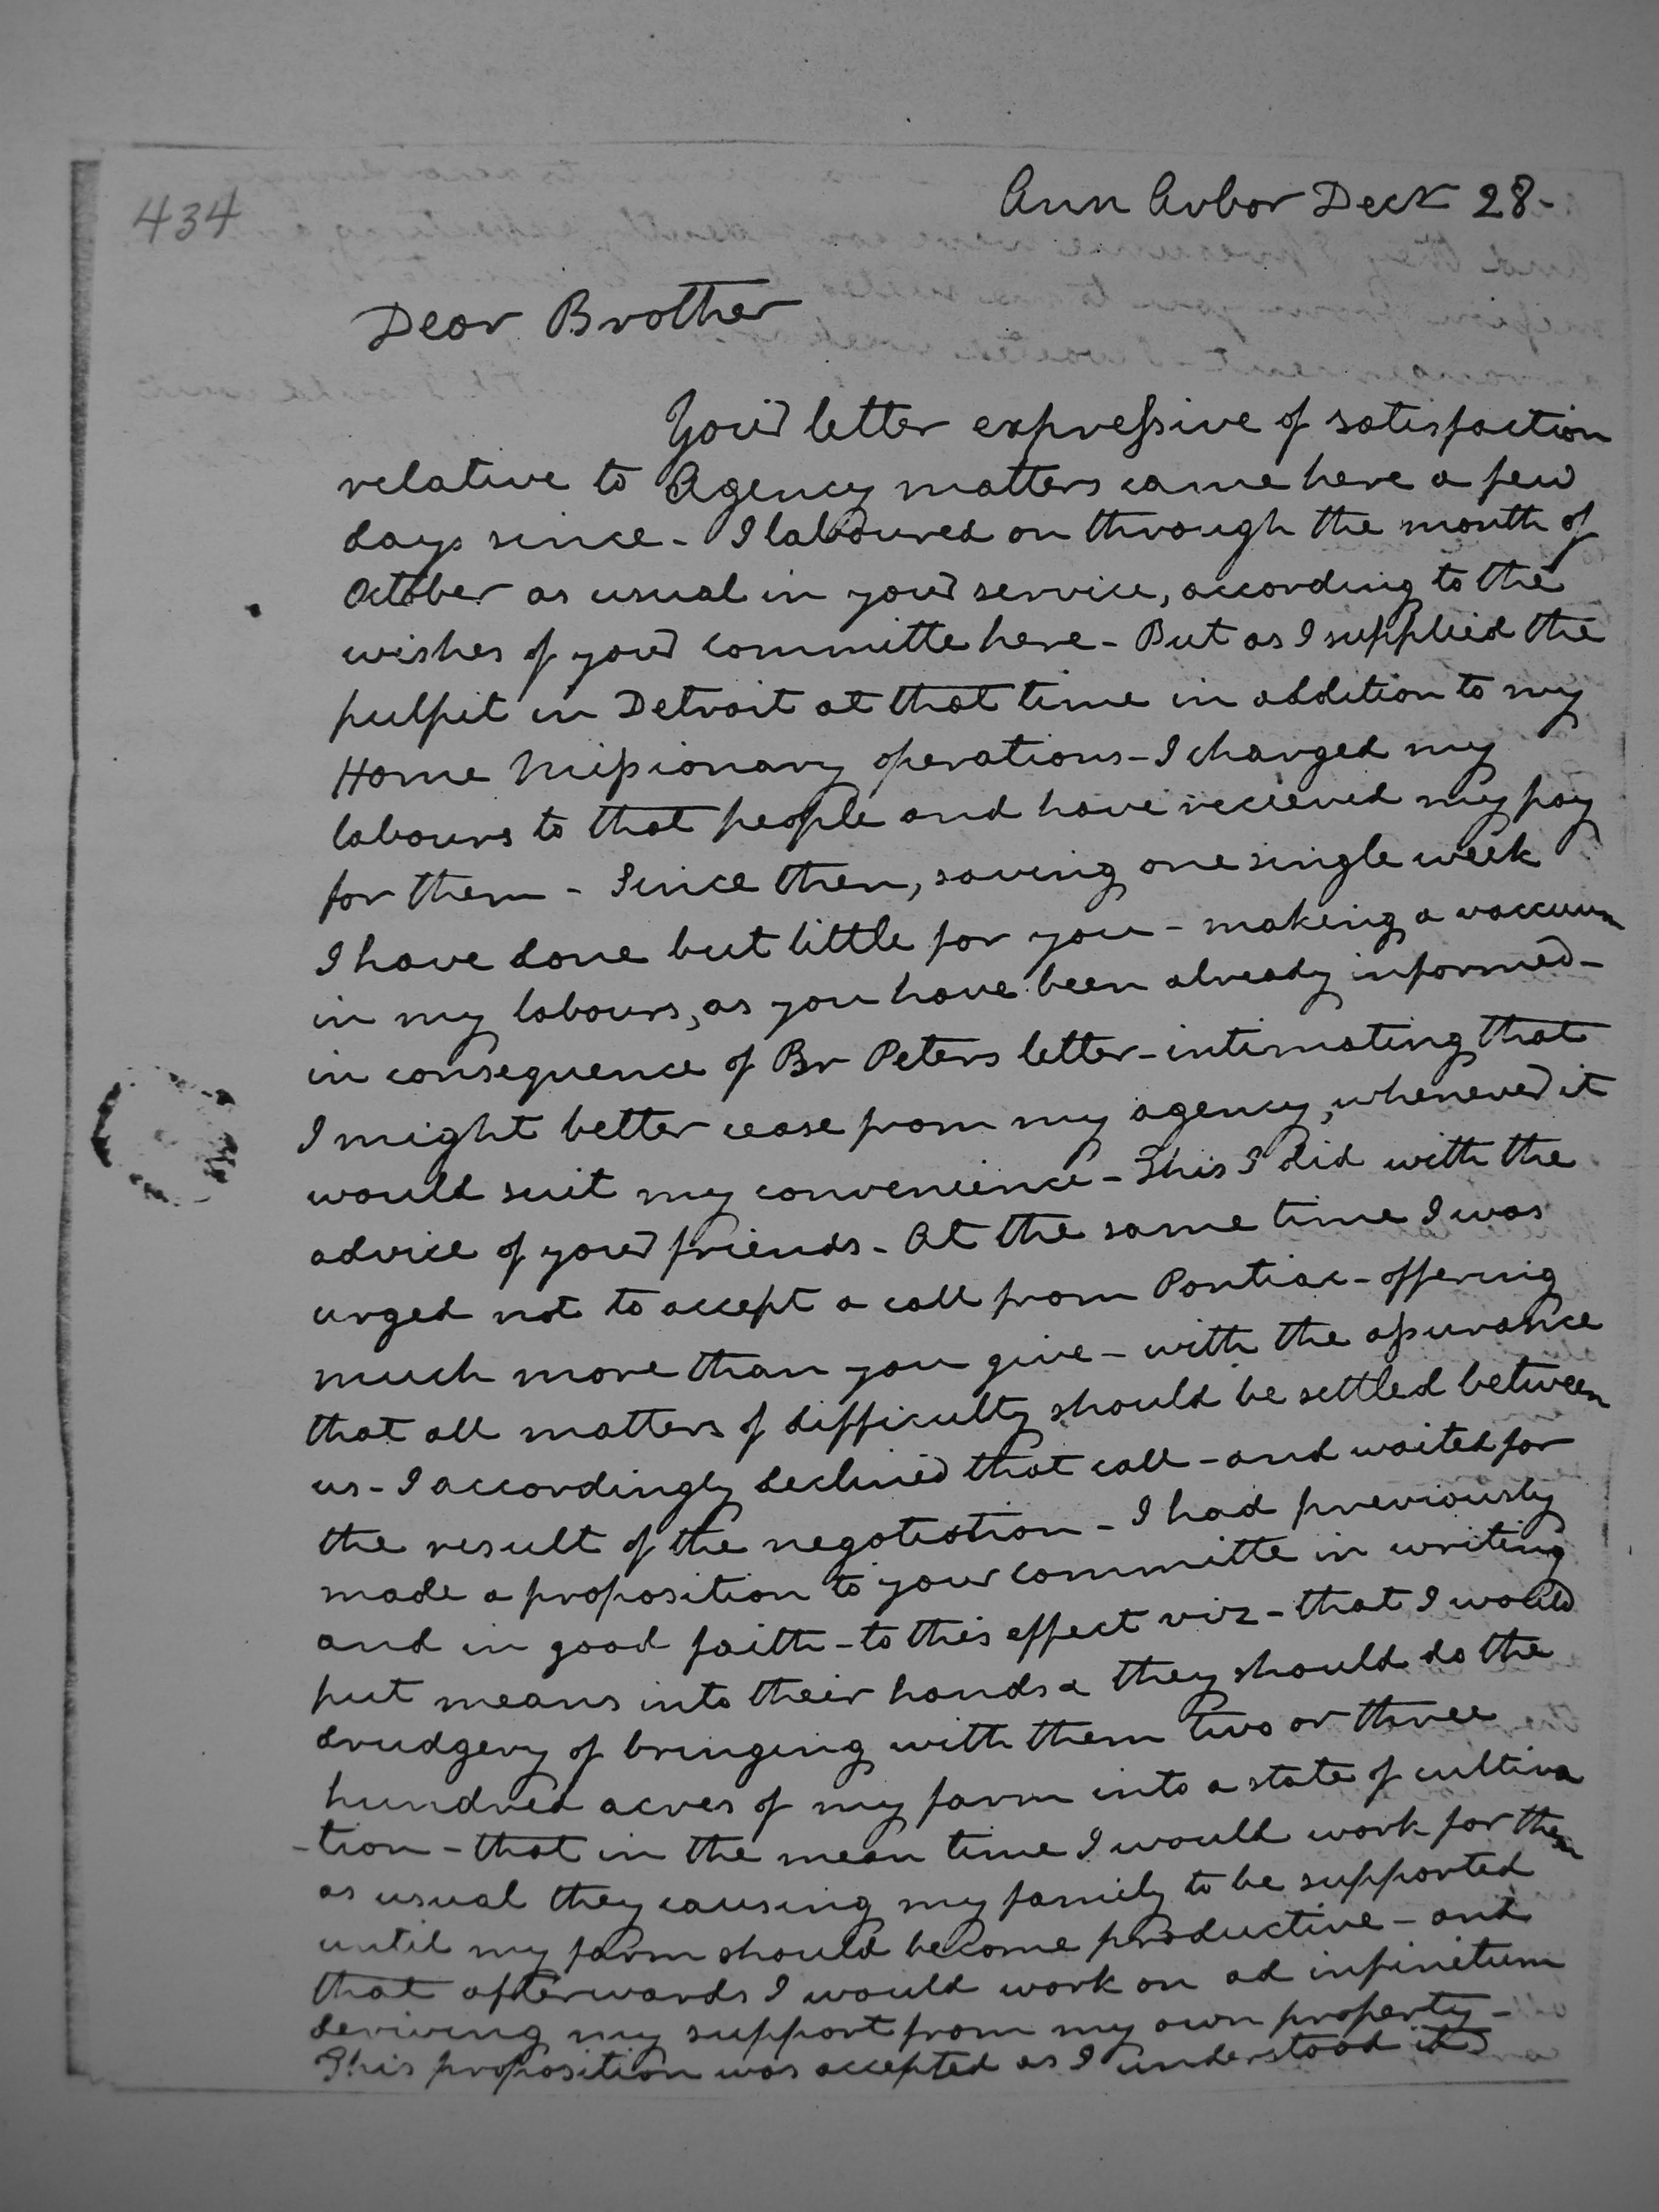 434
Ann Arbor Decr 28-
Dear Brother
Your letter expressive of satisfaction
relative to Agency matters came here a few
days since - I laboured on through the month of
October as usual in your service, according to the
wishes of your committe here - But as I supplied the
pulpit in Detroit at that time in addition to my
Home Missionary operations - I charged my
labours to that people and have recieved my pay
for them - Since then, saving one single week
I have done but little for you - making a vaccuum
in my labours, as you have been already informed -
in consequence of Br Peters letter - intimating that
I might better cease from my agency, whenever it
would suit my convenience - This I did with the
advice of your friends - At the same time I was
urged not to accept a call from Pontiac - offering
much more than you give - with the assurance
that all matters of difficulty should be settled between
us - I accordingly declined that call - and waited for
the result of the negotiation - I had previously
made a proposition to your committe in writing
and in good faith - to this effect viz - that I would
put means into their hands & they should do the
drudgery of bringing with them two or three
hundred acres of my farm into a state of cultiva
-tion - that in the mean time I would work for them
as usual they causing my family to be supported
until my farm should become productive - and
that afterwards I would work on ad infinitum
deriving my support from my own property -
This proposition was accepted as I understood it